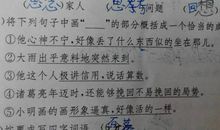 家人 问题
)将下列句子中画"____"的部分概括成一个恰当的
①他心神不宁,好像丢了什么东西似的坐在那儿。
②大雨出乎意料地突然来到。
③他这个人极讲信用,说话算数。
④诸葛亮年迈时,还能够挽回不易挽回的局势。
⑤小明画的画形象逼真,好像活的一样。